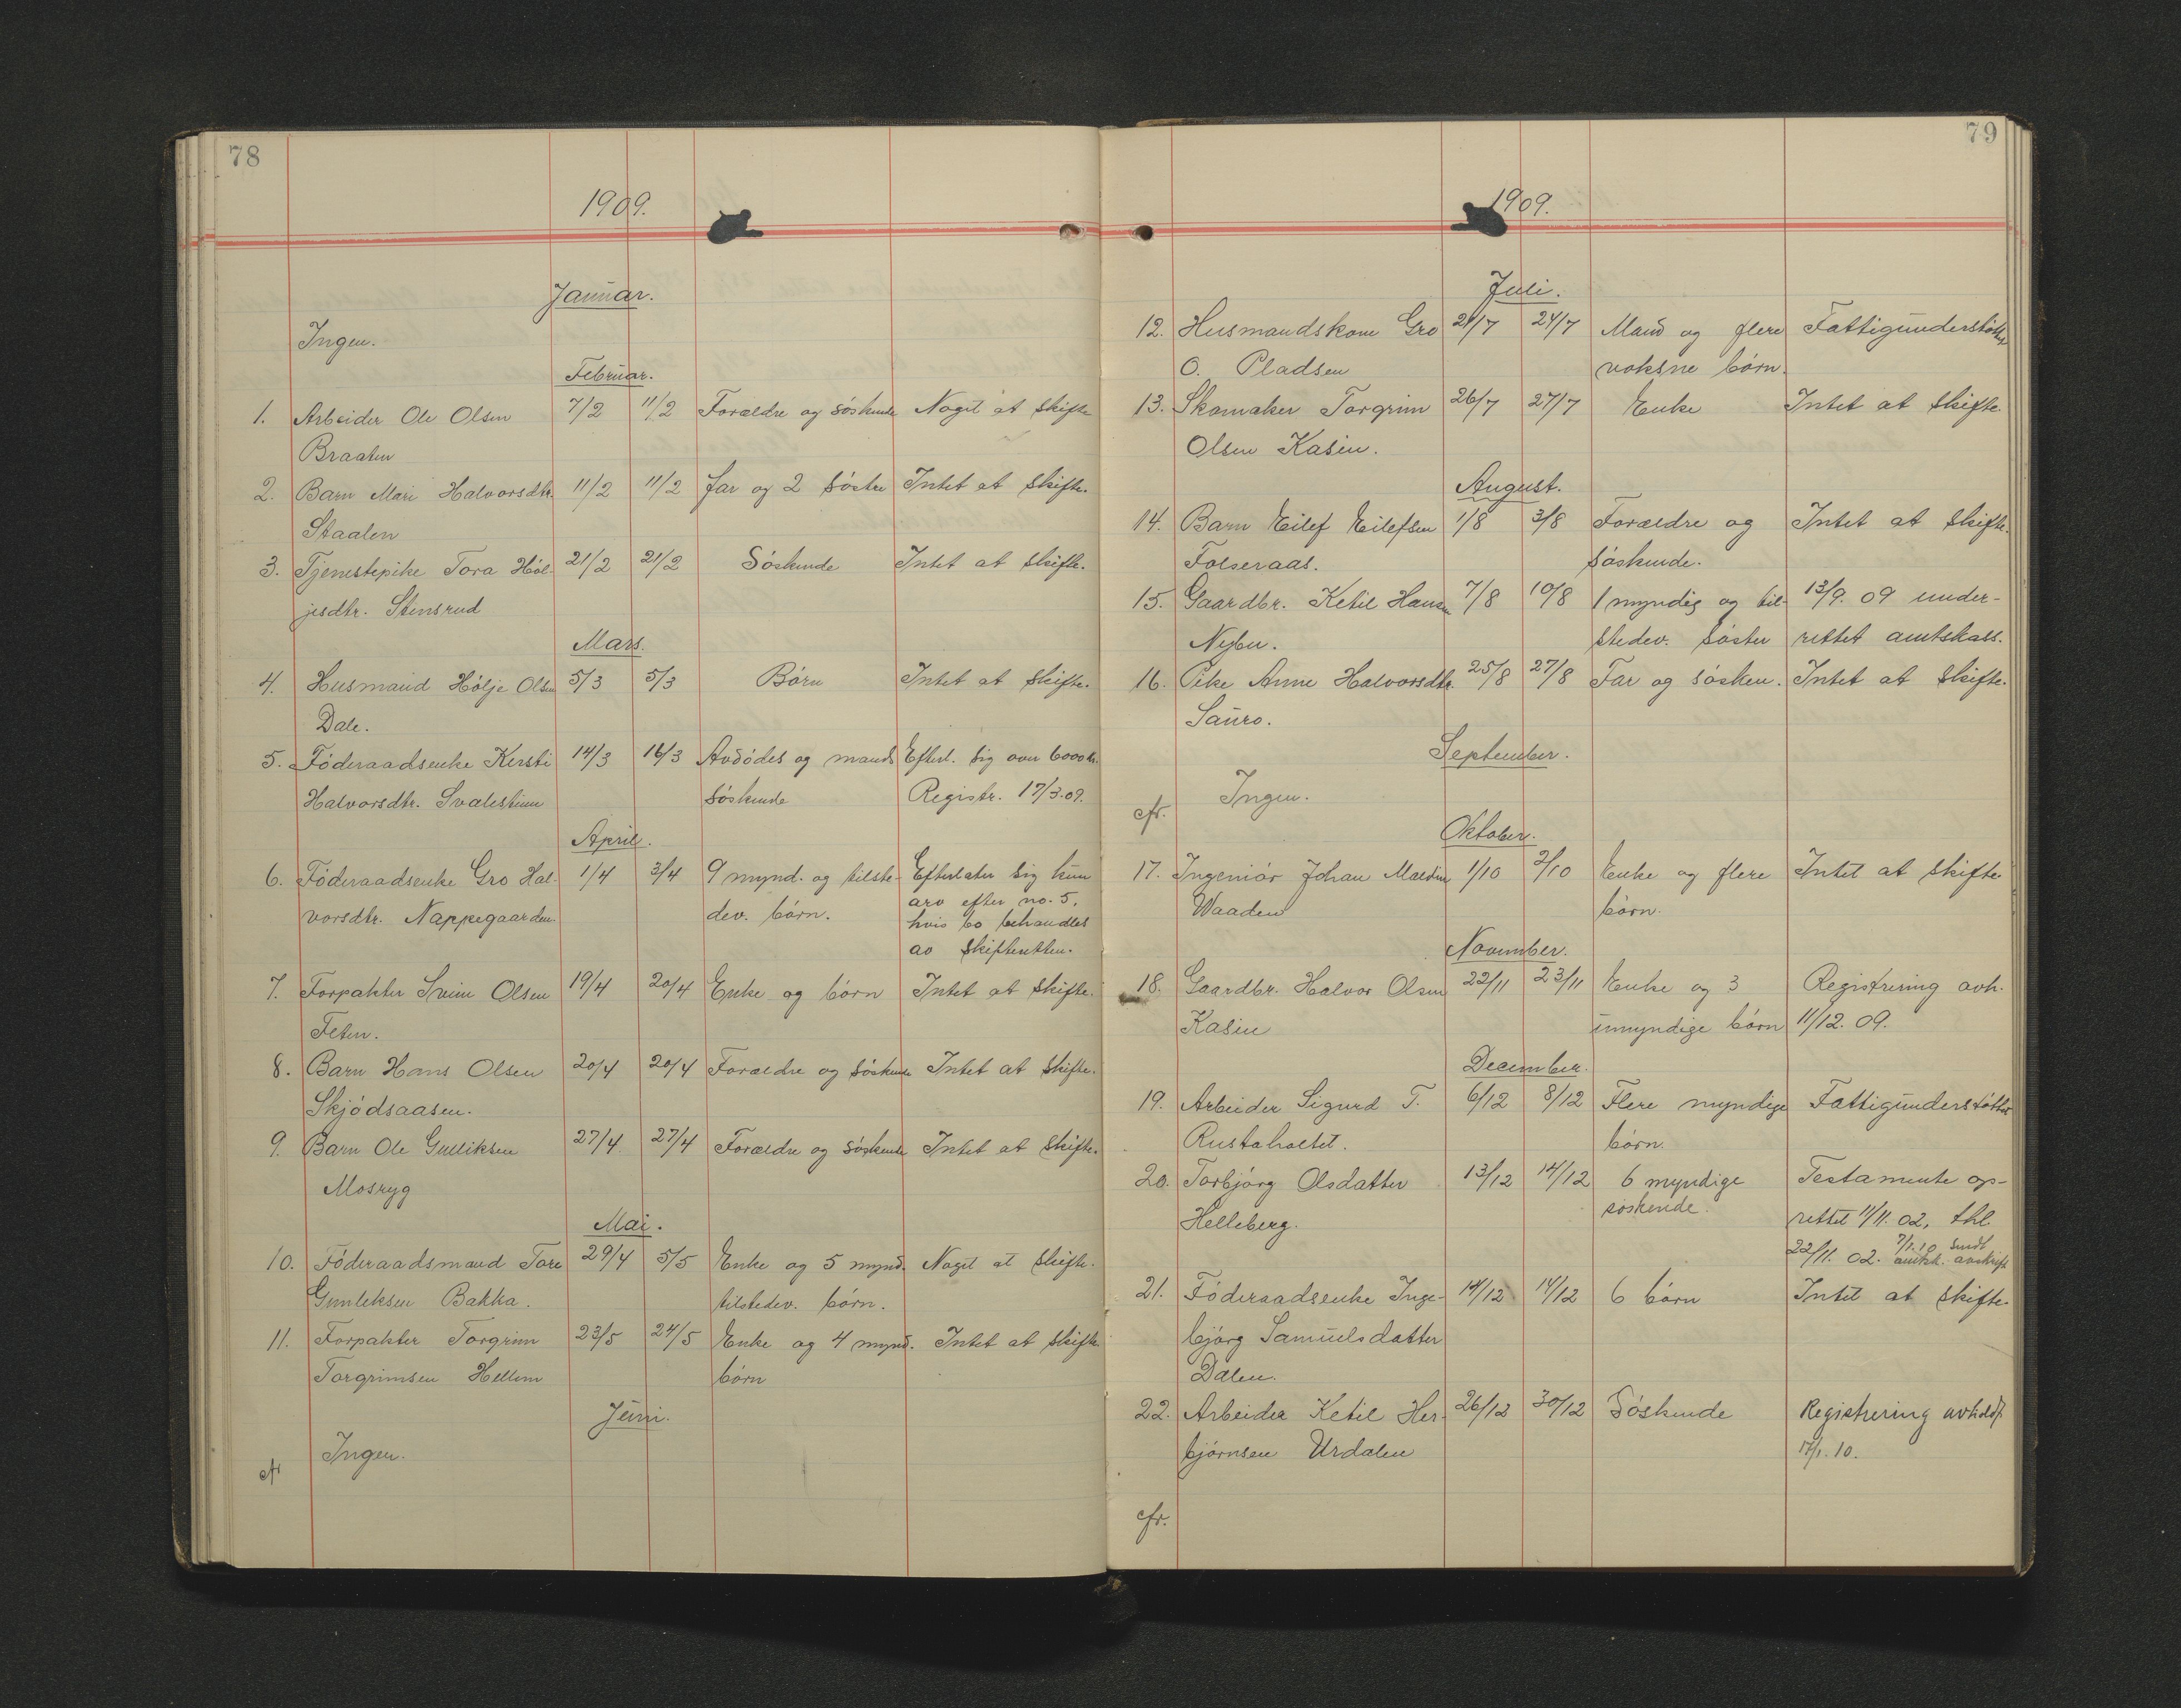 78
1909.
Januar.
Ingen.
Februar.
1. Arbeider Ole Olsen 7/2 11/2 Forældre og söskende Noget at skifte
Braaten
2. Barn Mari Halvorsdtr. 11/2 11/2 far og 2 söstre Intet at skifte.
Staalen
3. Tjenestepike Tora Höl- 21/2 21/2 Söskende Intet at skifte.
jesdtr. Stensrud
Mars.
4. Husmand Hölje Olsen 5/3 5/3 Börn Intet at skifte.
Dale.
5. Föderaadsenke Kersti 14/3 16/3 Avdödes og mands Efterl. sig over 6000 kr.
Halvorsdtr. Svalestuen söskende Registr. 17/3.09.
April.
6. Föderaadsenke Gro Hal- 1/4 3/4 9 mynd. og tilste- Efterlater sig kun
vorsdtr. Nappegaarden. dev. börn. arv efter no. 5,
hvis bo behandles
av skifteretten.
7. Forpakter Svein Olsen 19/4 20/4 Enke og börn Intet at skifte.
Feten.
8. Barn Hans Olsen 20/4 20/4 Forældre og söskende Intet at skifte.
Skjödsaasen.
9. Barn Ole Gulliksen 27/4 27/4 Forældre og söskende Intet at skifte.
Mosryg
Mai.
10. Föderaadsmand Tore 29/4 5/5 Enke og 5 mynd. Noget at skifte.
Gunleksen Bakka. tilstedev. börn.
11. Forpakter Torgrim 23/5 24/5 Enke og 4 mynd. Intet at skifte.
Torgrimsen Hellem börn
Juni.
Ingen.
cfr
79
1909.
Juli.
12. Husmandskone Gro 21/7 24/7 Mand og flere Fattigunderstöttet
O. Pladsen voksne börn.
13. Skomaker Torgrim 26/7 27/7 Enke Intet at skifte.
Olsen Kasin.
August.
14. Barn Eilef Eilefsen 1/8 3/8 Forældre og Intet at skifte.
Folseraas. söskende.
15. Gaardbr. Ketil Hansen 7/8 10/8 1 myndig og til- 13/9. 09 under-
Nybu. stedev. söster rettet amtskass.
16. Pike Anne Halvorsdtr. 25/8 27/8 Far og sösken. Intet at skifte.
Sauro.
September.
Ingen.
cfr.
Oktober.
17. Ingeniör Johan 1/10 2/10 Enke og flere Intet at skifte
Waaden börn.
November.
18. Gaardbr. Halvor Olsen 22/11 23/11 Enke og 3 Registrering avh.
Kasin umyndige börn 11/12. 09.
December.
19. Arbeider Sigurd T. 6/12 8/12 Flere myndige Fattigunderstöttet
Rustahaltet. börn.
20. Torbjörg Olsdatter 13/12 14/12 6 myndige Testamente op-
Helleberg. söskende. rettet 11/11. 02, thl
22/11. 02. 7/1.10 sendt amtsk. avskrift
21. Föderaadsenke Inge- 14/12 14/12 6 börn Intet at skifte.
björg Samuelsdatter
Dalen.
22. Arbeider Ketil Her- 26/12 30/12 Söskende Registrering avholdt
björnsen Urdalen 17/1. 10.
cfr.